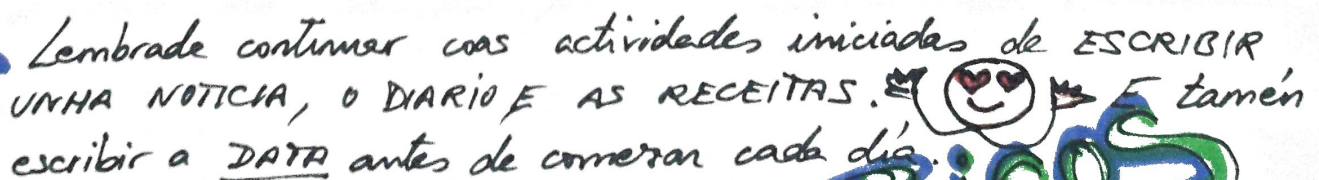 Lembrade continuar coas actividades iniciadas de ESCRIBIR
UNHA NOTICIA, O DIARIO E AS RECEITAS. E tamén
escribir a DATA antes de comezar cada día.